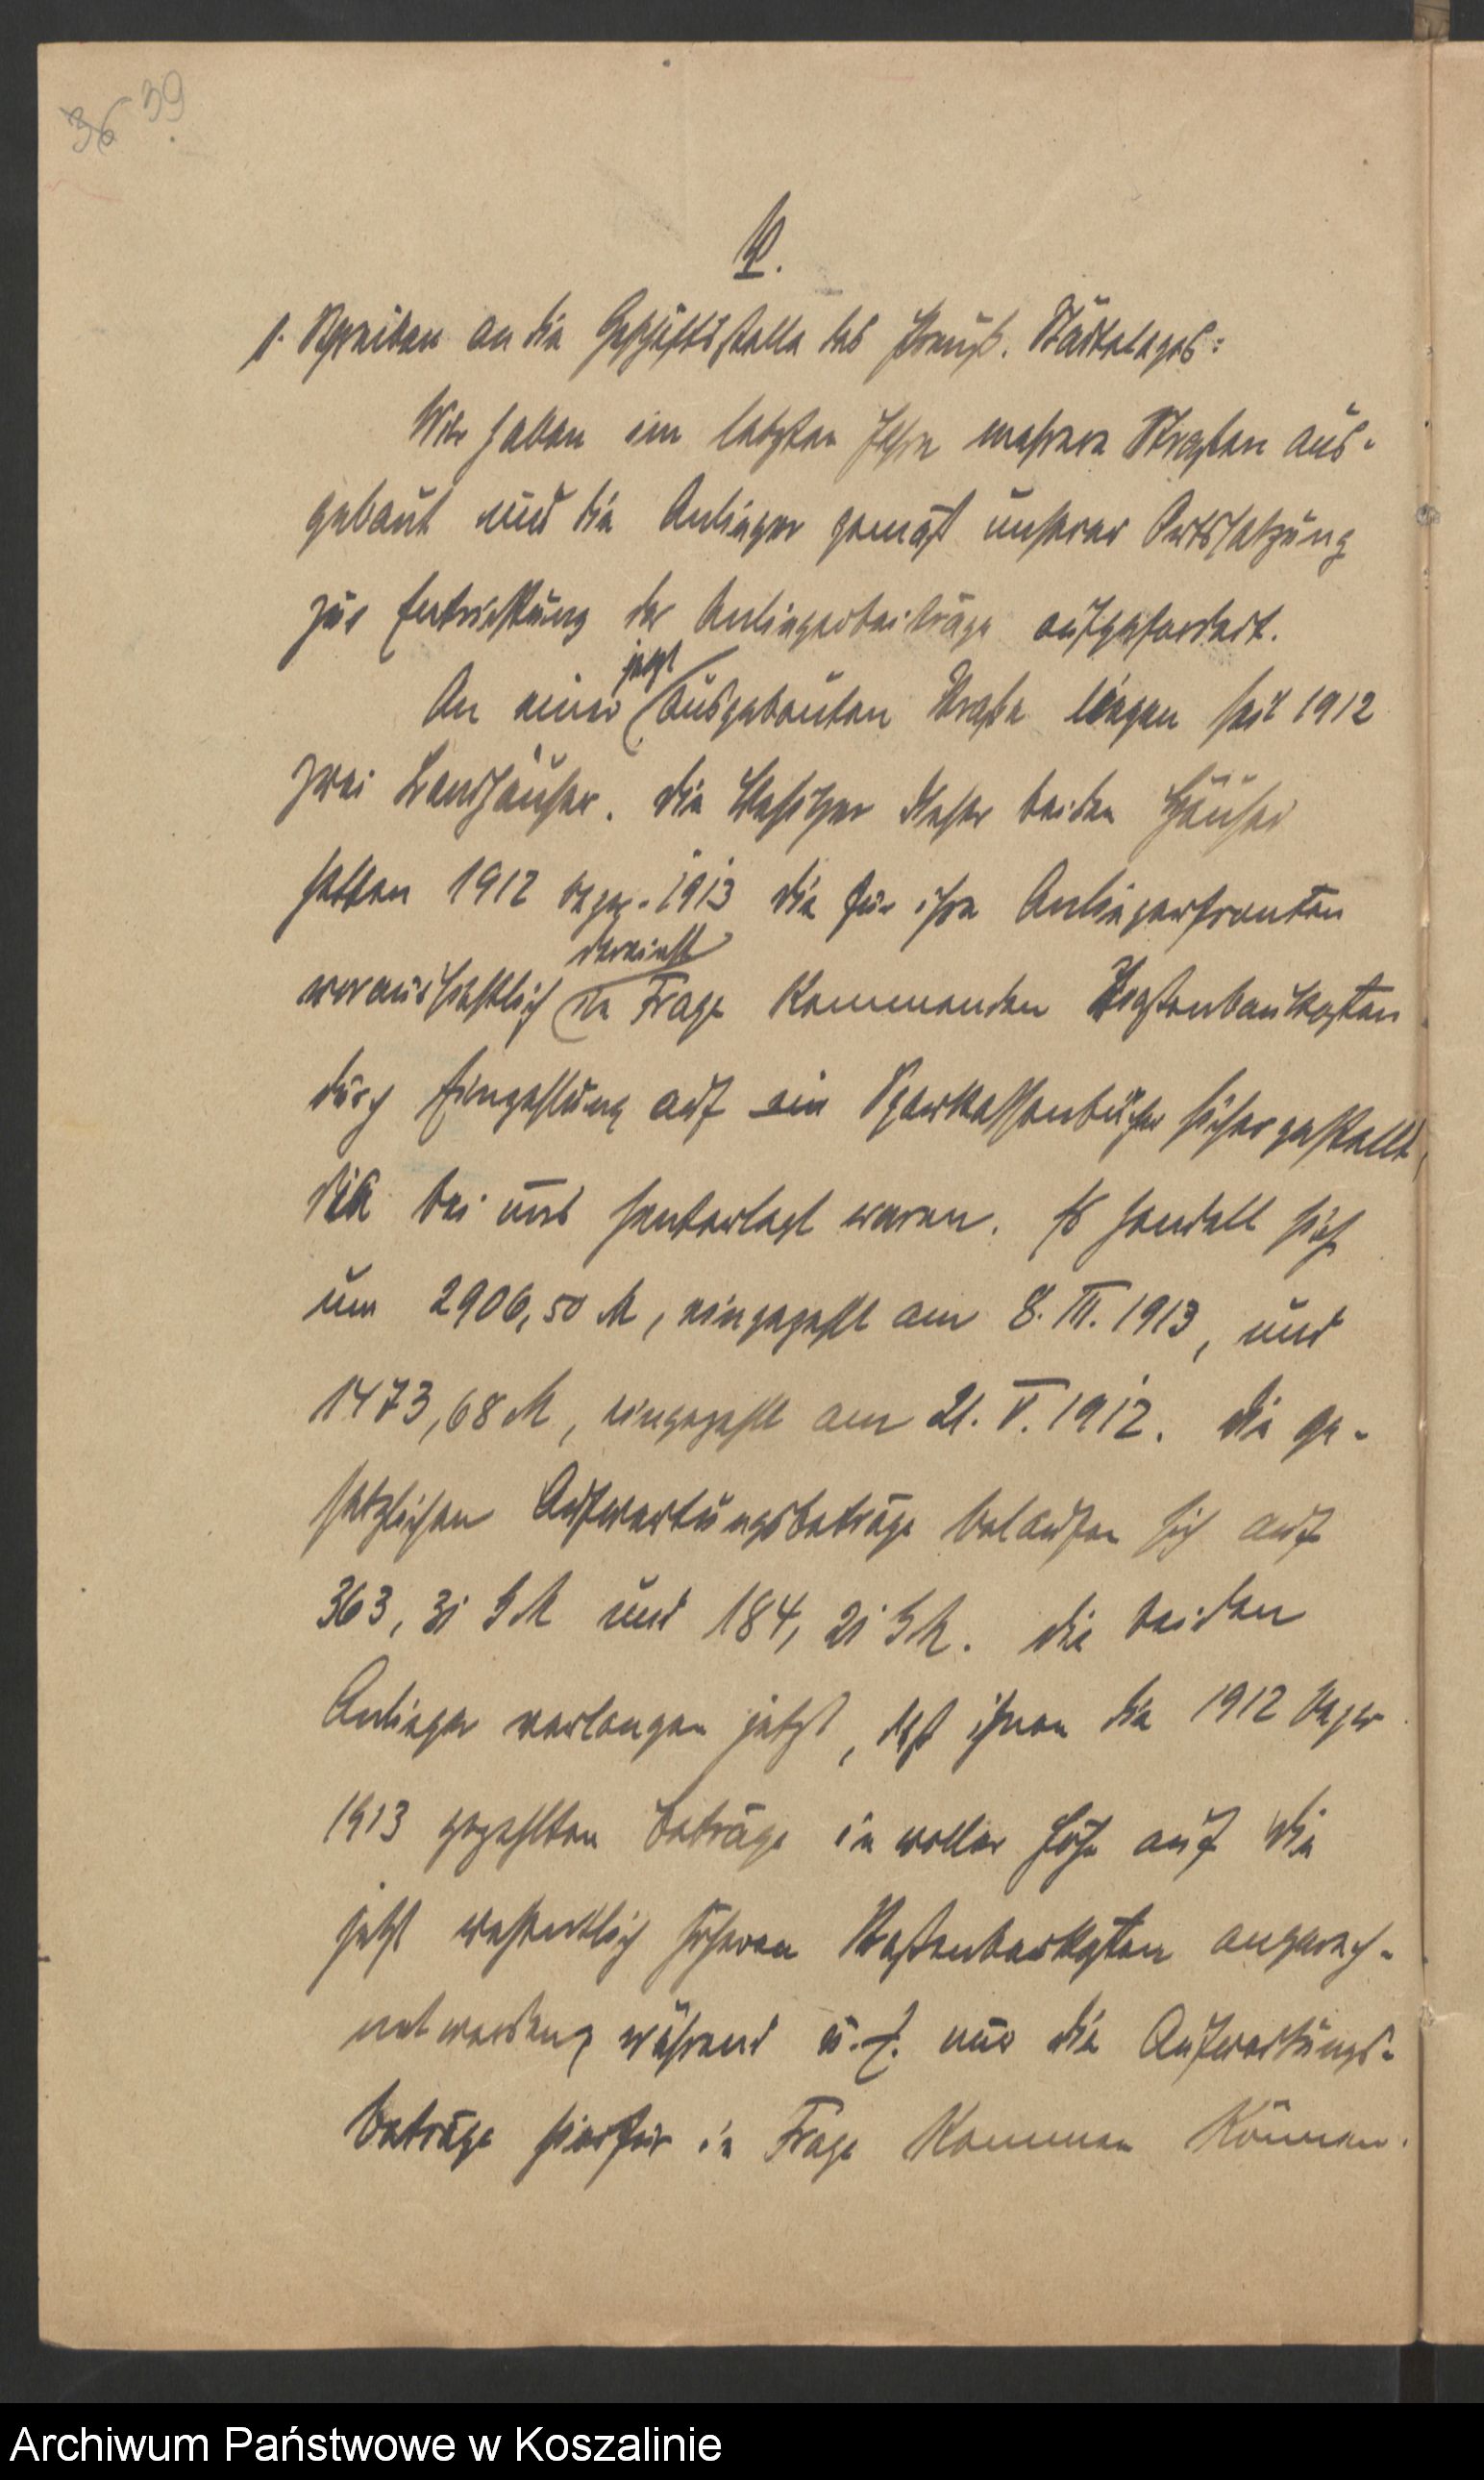 36 39
V.
1. Schreiben an die Geschäftsstelle des Preuß. Städtetages:
Wir haben im letzten Jahre mehrere Straßen aus-
gebaut und die Anlieger gemäß unserer Ortssatzung
zur Entrichtung der Anliegerbeiträge aufgefordert.
jetzt
An einer ausgebauten Straße liegen seit 1912
zwei Landhäuser. Die Besitzer dieser beiden Häuser
hatten 1912 bezw. 1913 die für ihre Anliegerfronten
dereinst
voraussichtlich in Frage kommenden Straßenbaukosten
durch Einzahlung auf ein Sparkassenbücher sichergestellt,
die bei uns hinterlegt waren. Es handelt sich
um 2906,50 M, eingezahlt am 8. III. 1913, und
1473,68 M, eingezahlt am 21. V. 1912. Die ge-
setzlichen Aufwertungsbeträge belaufen sich auf
363,31 GM und 184,21 GM. Die beiden
Anlieger verlangen jetzt, daß ihnen die 1912 bezw
1913 gezahlten Beträge in voller Höhe auf die
jetzt wesentlich höheren Straßenbaukosten angerech-
net werden, während u. E. nur die Aufwertungs-
beträge hierfür in Frage kommen können.
Archiwum Państwowe w Koszalinie